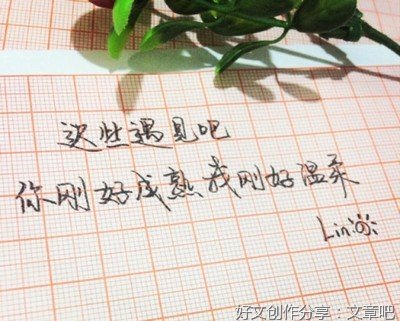 这些遇见吧
你刚好成熟我刚好温柔
Lin
好文创作分享：文章吧